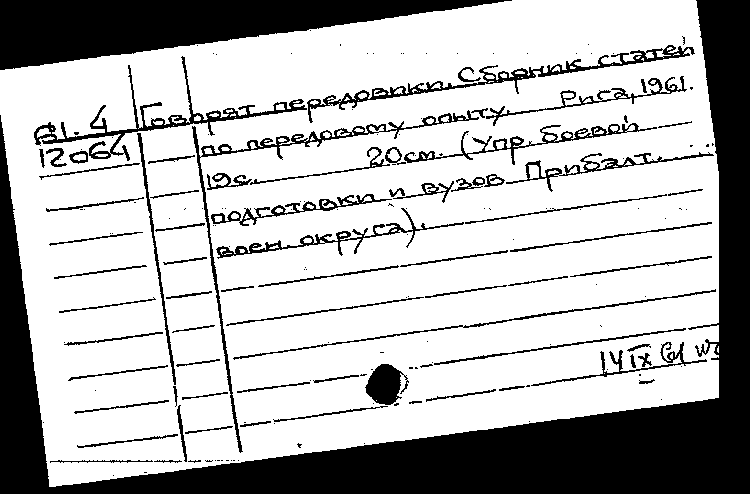 61.4 Говорят передовики. Сборник статей
12064 по передовому опыту. Рига, 1961.
19с. 20см. (Упр. боевой
подготовки и вузов Прибалт.
воен. округа).
14 IX 61